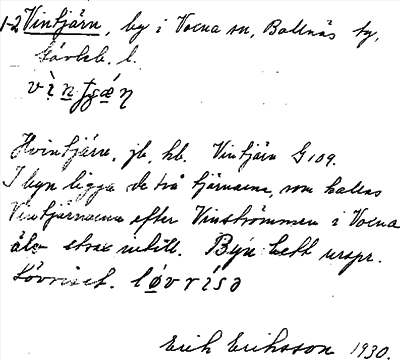 1-2 Vintjärn, by i Voxna sn, Bollnäs tg,
Gävleb. l.
Hvintjärn, jb, kb. Vintjärn G 109.
I byn ligga de två tjärnarna, som kallas
Vintjärnarna efter Vinströmmen i Voxna
älv strax intill. Byn hett urspr.
Lövriset. lövrisə
Erik Eriksson 1930.